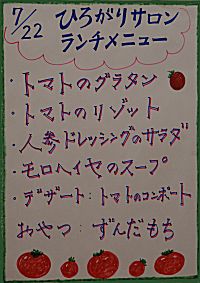 7/22 ひろがりサロン
ランチメニュー
・トマトのグラタン
・トマトのリゾット
・人参ドレッシングのサラダ
・モロヘイヤのスープ
・デザート：トマトのコンポート
おやつ：ずんだもち